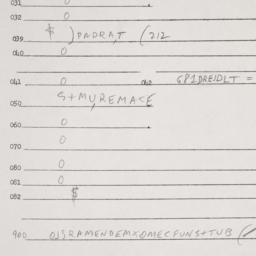 031 0
032 0
039 $ ) PADRA,T ( 212
040 0
041 0 040 681DREIDLT =
050 S+MU,REMACE
060 0
070 0
080 0
081 0
082 $
900 0J3RAMENDEMXOMECFUNS+TUB (